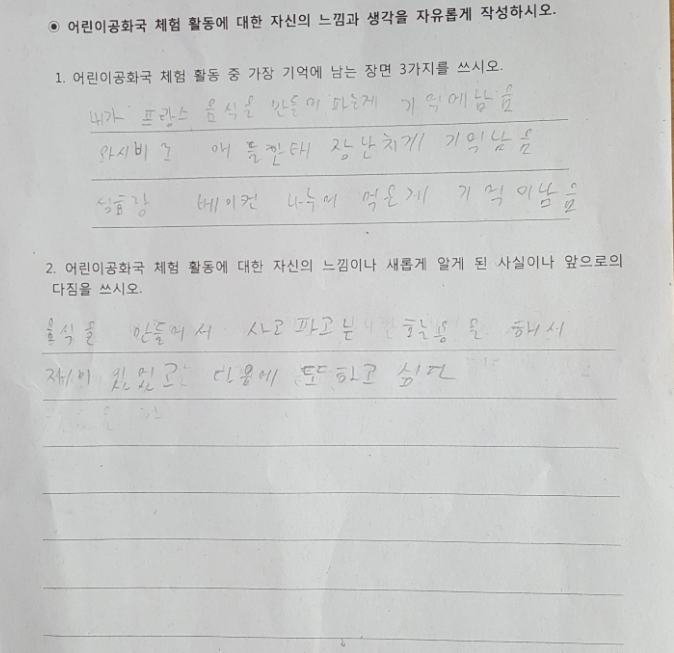 ◉ 어린이공화국 체험 활동에 대한 자신의 느낌과 생각을 자유롭게 작성하시오.
1. 어린이공화국 체험 활동 중 가장 기억에 남는 장면 3가지를 쓰시오.
내가 프랑스 음식을 만들어 파는게 기억에남음
와시비로 애들한태 장난치게 기억남음
베이컨 나누어 먹은게 기억이남음
2. 어린이공화국 체험 활동에 대한 자신의 느낌이나 새롭게 알게 된 사실이나 앞으로의
다짐을 쓰시오.
음식을 만들어서 사고파고 활용을 해서
재미있었고 다음에 또하고 싶다